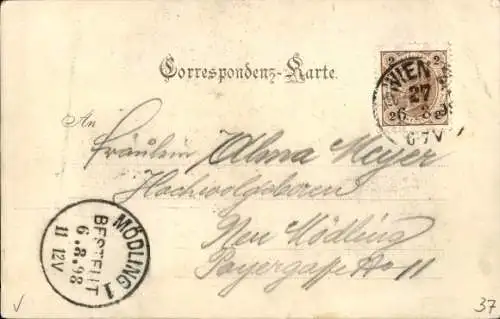 Correspondenz-Karte.
2 2
WIEN
27
6 8
6-7V
An
Fräulein Alma Meyer
Hochwolgeboren
Neu Mödling
Payergasse No 11
MÖDLING 1
BESTELLT
6.8.98
11 12V
37